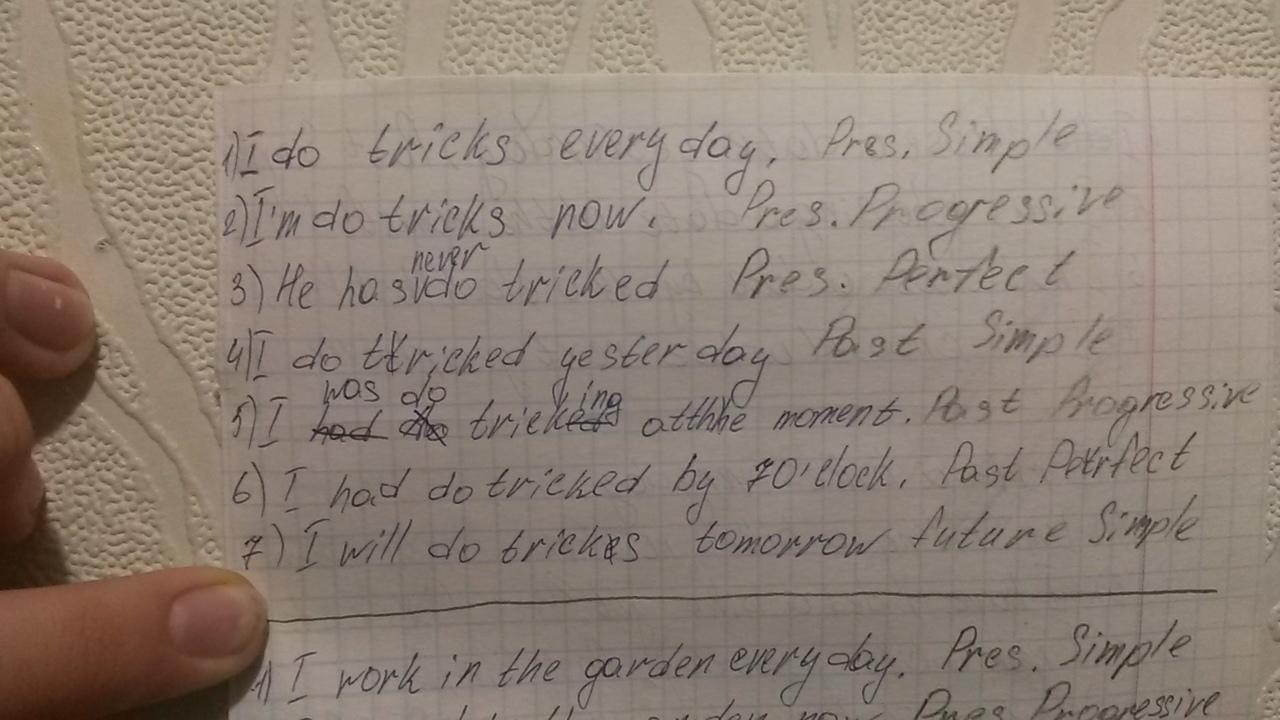 1) I do tricks every day. Pres. Simple
2) I'm do tricks now. Pres. Progressive
never
3) He has do tricked Pres. Perfect
4) I do tricked yesterday Past Simple
was do ing
5) I had do tricked at the moment. Past Progressive
6) I had do tricked by 7 O'clock. Past Perfect
7) I will do tricks tomorrow future Simple
1) I work in the garden every day. Pres. Simple
now. Pres. Progressive